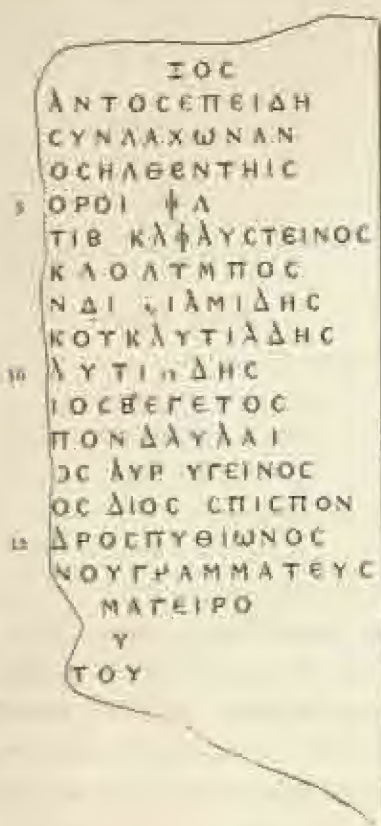 ΞΟC
ΑΝΤΟCΕΠΕΙΔΗ
CΥΝΛΑΧΩΝΑΝ
ΟCΗΛΘΕΝΤΗΙC
5 ΟΡΟΙ ΦΛ
ΤΙΒ ΚΛΦΑΥCΤΕΙΝΟC
ΚΛΟΛΥΜΠΟC
ΝΔΙ ΙΑΜΙΔΗC
ΚΟΥΚΛΥΤΙΑΔΗC
10 ΛΥΤΙ ΔΗC
ΙΟCΒΕΓΕΤΟC
ΠΟΝΔΑΥΛΑΙ
ΟC ΑΥΡ ΥΓΕΙΝΟC
ΟC ΔΙΟC CΠΙCΠΟΝ
15 ΔΡΟCΠΥΘΙΩΝΟC
ΝΟΥΓΡΑΜΜΑΤΕΥC
ΜΑΓΕΙΡΟ
Υ
ΤΟΥ